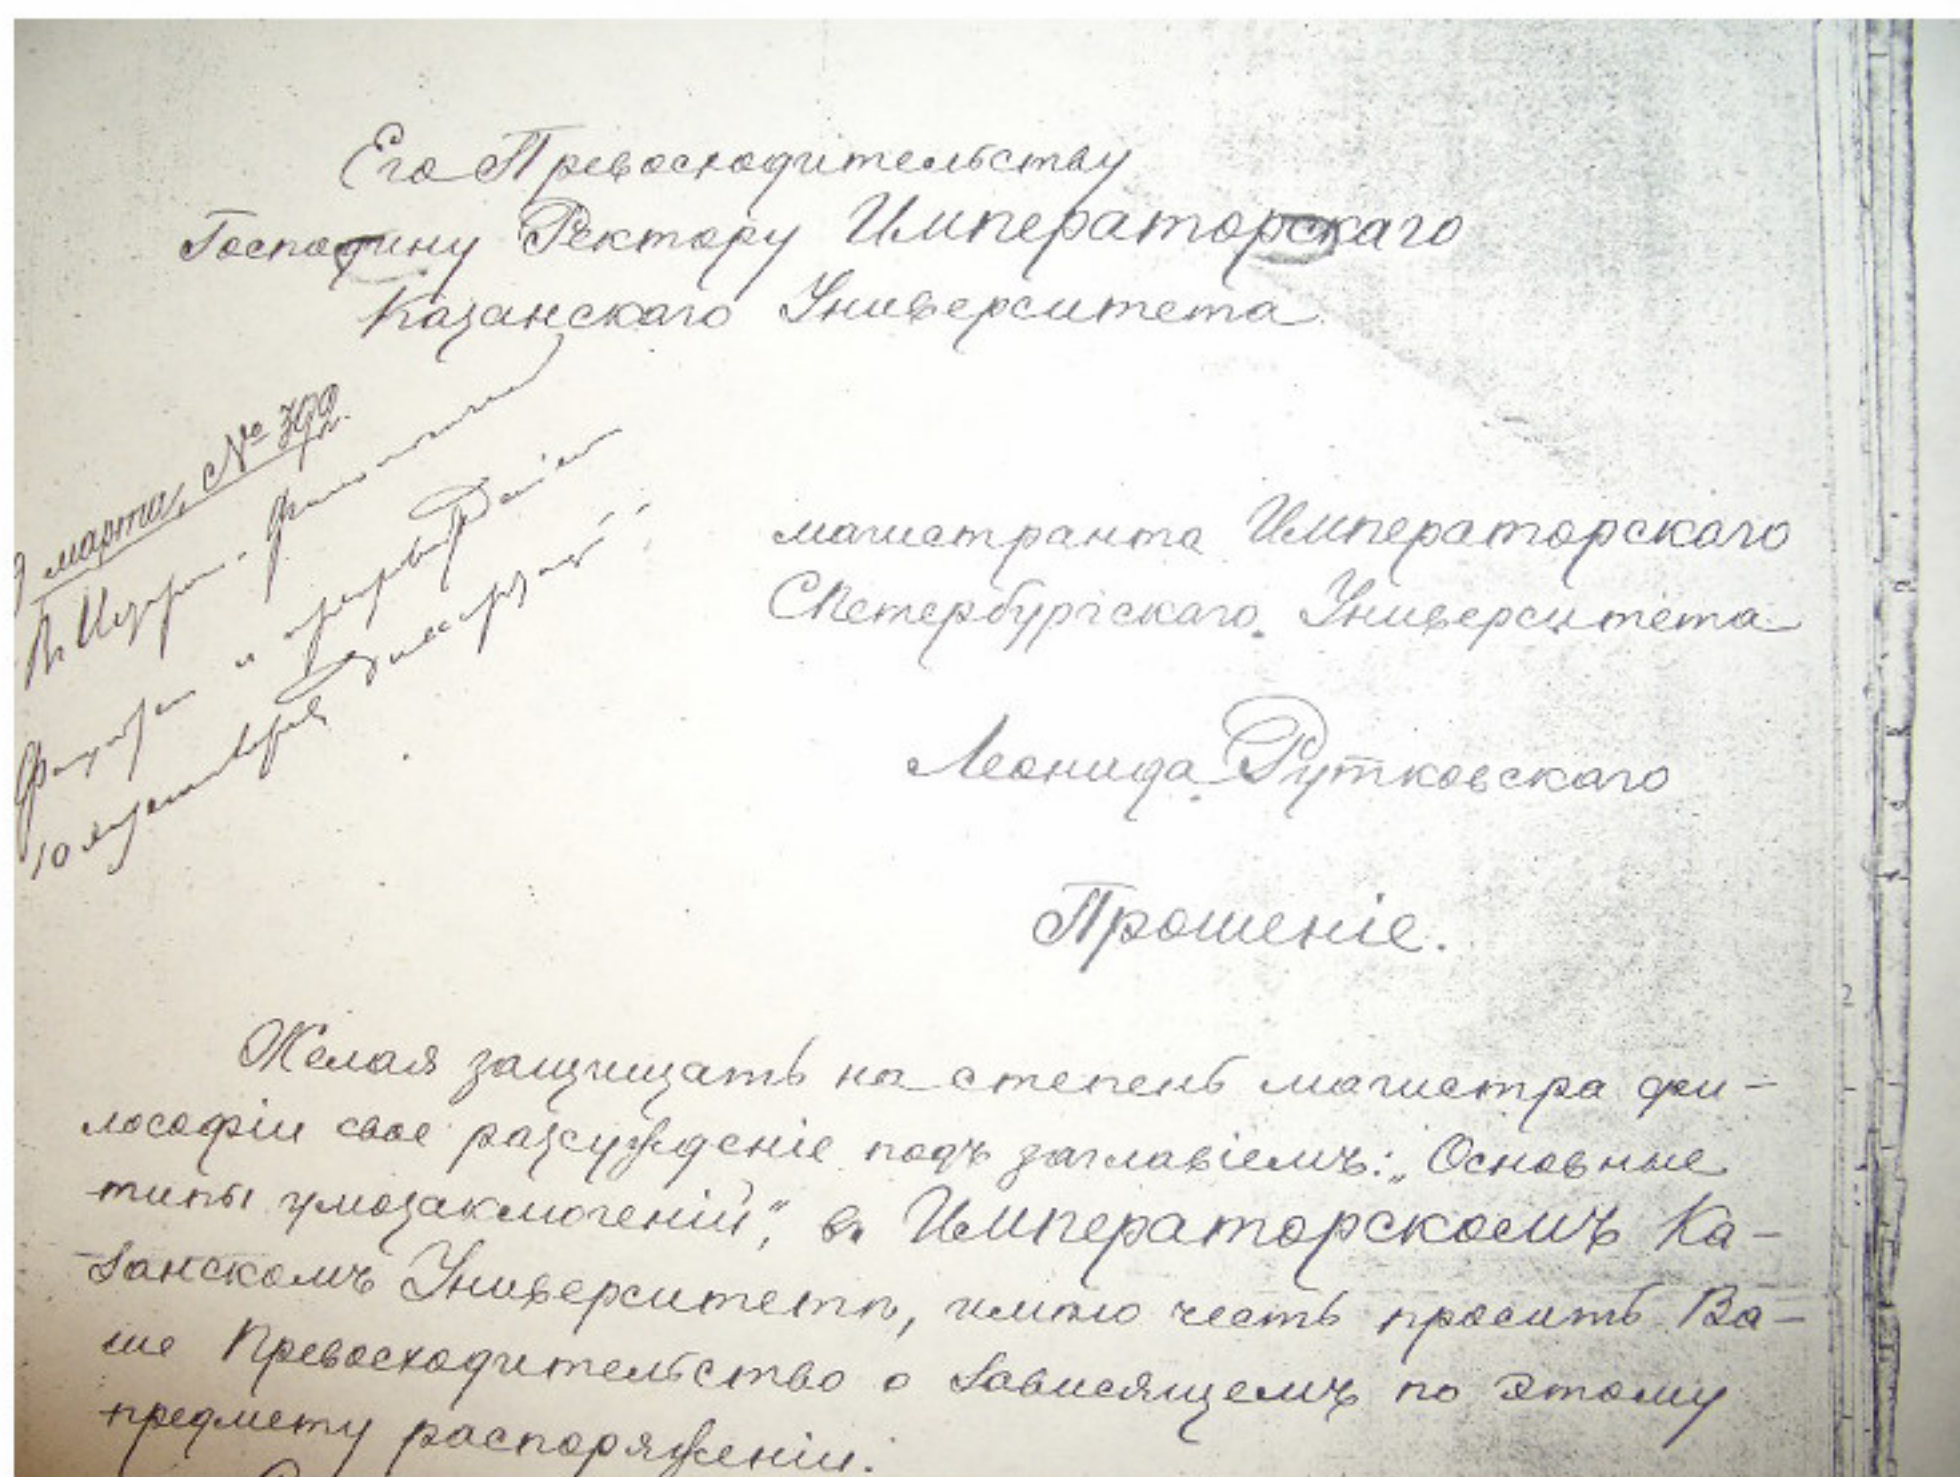 Его Превосходительству
Господину Ректору Императорскаго
Казанскаго Университета
марта, №
магистранта Императорскаго
СПетербургскаго Университета
Леонида Рутковскаго
Прошеніе.
Желая защищать на степень магистра фи-
лософіи свое разсужденіе подъ заглавіемъ: „Основные
типы умозаключеній“, въ Императорскомъ Ка-
занскомъ Университетѣ, имѣю честь просить Ва-
ше Превосходительство о зависящемъ по этому
предмету распоряженіи.